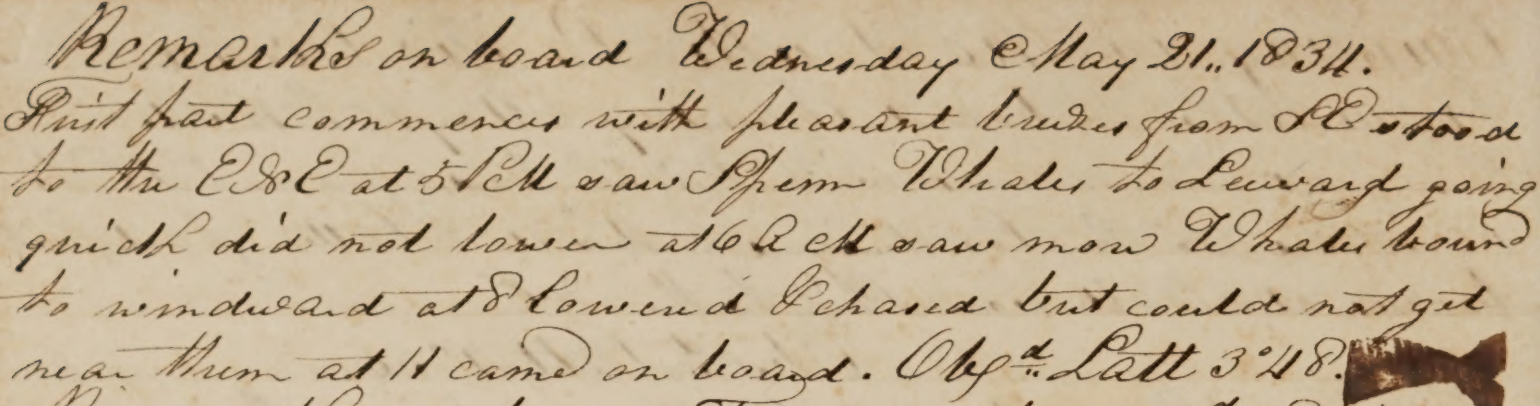 Remarks on board Wednesday May 21.. 1834.
First part commences with pleasant breezes from SE stood
to the ENE at 5 PM saw Sperm Whales to Leeward going
quick did not lower at 6 AM saw more Whales bound
to windward at 8 lowered & chased but could not get
near them at 11 came on board. Obsd Latt 3°48.